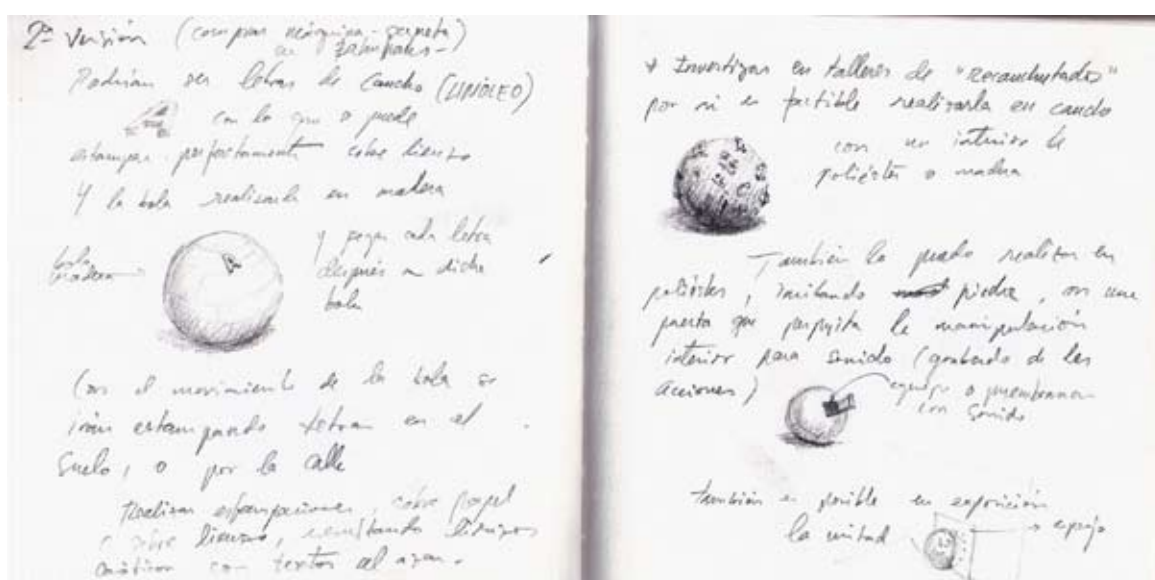 2ª Versión (comprar máquina
en
Podrían ser letras de caucho (LINÓLEO)
con lo que se puede
estampar perfectamente sobre lienzo
Y la bola realizarla en madera
bola
madera
y pegar cada letra
después a dicha
bola
Con el movimiento de la bola se
irán estampando letras en el
suelo, o por la calle
Realizar estampaciones, sobre papel
o sobre lienzo, resultando lienzos
con textos al azar.
+ Investigar en talleres de "recauchutado"
por si es factible realizarla en caucho
con un interior de
poliéster o madera
También la puedo realizar en
poliéster, imitando piedra, con una
puerta que permita la manipulación
interior para sonido (grabado de las
acciones)
equipo o membrana
con sonido
también es posible en exposición
la mitad
espejo